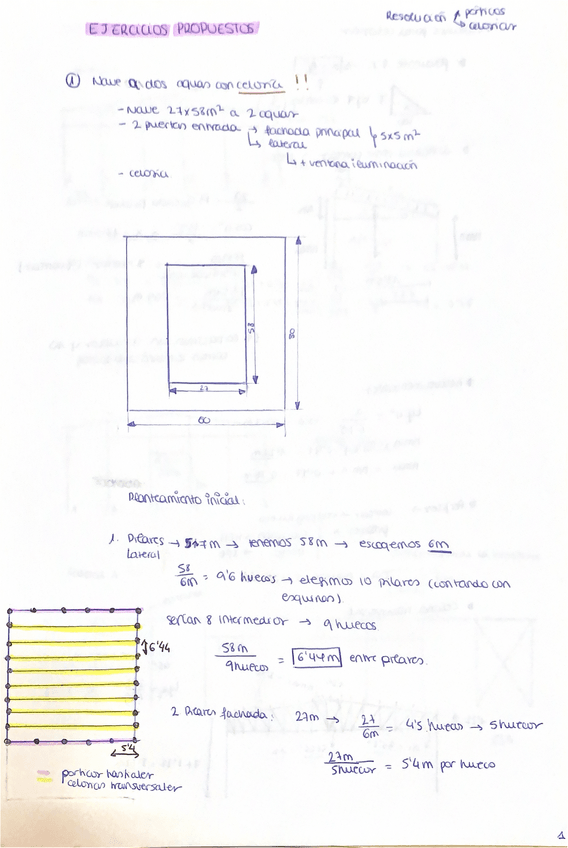 EJERCICIOS PROPUESTOS
Resolución pórticos
celosías
① Nave a dos aguas con celosía !!
- Nave 27x58m² a 2 aguas
- 2 puertas entrada → fachada principal 5x5m²
↳ lateral
↳ + ventana iluminación
- celosía
58
90
27
60
Planteamiento inicial:
1. Pilares → 5÷7m → tenemos 58m → escogemos 6m
lateral
58/6m = 9'6 huecos → elegimos 10 pilares (contando con
esquinas).
serían 8 intermedios → 9 huecos
58m/9huecos = 6'44m entre pilares.
6'44
2 Pilares fachada: 27m → 27/6m = 4'5 huecos → 5 huecos
27m/5huecos = 5'4m por hueco
5'4
porticos hastiales
celosias transversales
1